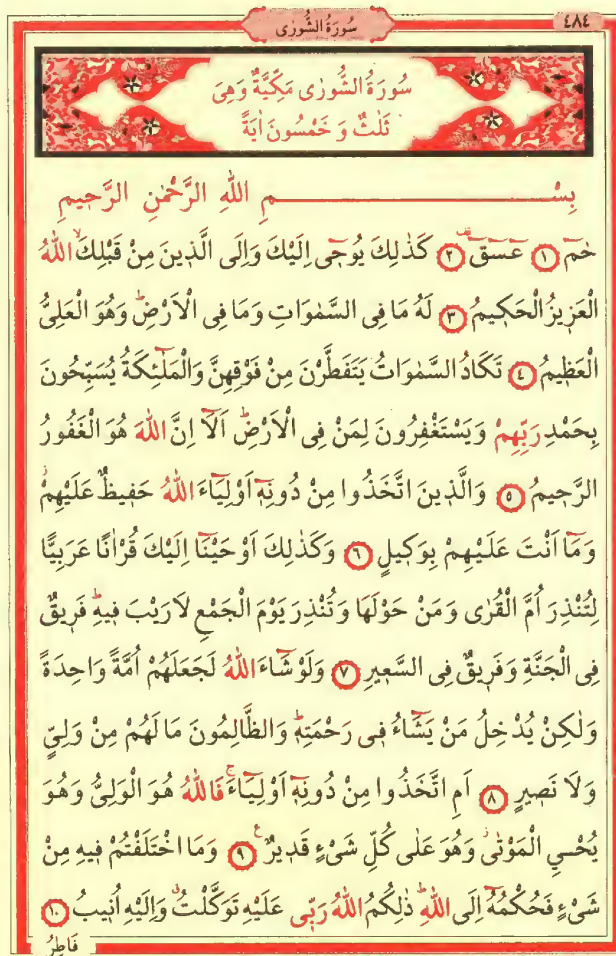 سُورَةُ الشُّورٰى
٤٨٤
سُورَةُ الشُّورٰى مَكِّيَّةٌ وَهِيَ
ثَلٰثٌ وَ خَمْسُونَ اٰيَةً
بِسْمِ اللهِ الرَّحْمٰنِ الرَّحِيمِ
حٰمٓ ﴿١﴾ عٓسٓقٓ ﴿٢﴾ كَذٰلِكَ يُوحٖٓى اِلَيْكَ وَاِلَى الَّذٖينَ مِنْ قَبْلِكَۙ اللهُ
الْعَزٖيزُ الْحَكٖيمُ ﴿٣﴾ لَهُ مَا فِى السَّمٰوَاتِ وَمَا فِى الْاَرْضِؕ وَهُوَ الْعَلِىُّ
الْعَظٖيمُ ﴿٤﴾ تَكَادُ السَّمٰوَاتُ يَتَفَطَّرْنَ مِنْ فَوْقِهِنَّ وَالْمَلٰٓئِكَةُ يُسَبِّحُونَ
بِحَمْدِ رَبِّهِمْ وَيَسْتَغْفِرُونَ لِمَنْ فِى الْاَرْضِؕ اَلَٓا اِنَّ اللهَ هُوَ الْغَفُورُ
الرَّحٖيمُ ﴿٥﴾ وَالَّذٖينَ اتَّخَذُوا مِنْ دُونِهٖٓ اَوْلِيَٓاءَ اللهُ حَفٖيظٌ عَلَيْهِمْۘ
وَمَٓا اَنْتَ عَلَيْهِمْ بِوَكٖيلٍ ﴿٦﴾ وَكَذٰلِكَ اَوْحَيْنَٓا اِلَيْكَ قُرْاٰنًا عَرَبِيًّا
لِتُنْذِرَ اُمَّ الْقُرٰى وَمَنْ حَوْلَهَا وَتُنْذِرَ يَوْمَ الْجَمْعِ لَا رَيْبَ فٖيهِؕ فَرٖيقٌ
فِى الْجَنَّةِ وَفَرٖيقٌ فِى السَّعٖيرِ ﴿٧﴾ وَلَوْ شَٓاءَ اللهُ لَجَعَلَهُمْ اُمَّةً وَاحِدَةً
وَلٰكِنْ يُدْخِلُ مَنْ يَشَٓاءُ فٖى رَحْمَتِهٖؕ وَالظَّالِمُونَ مَا لَهُمْ مِنْ وَلِىٍّ
وَلَا نَصٖيرٍ ﴿٨﴾ اَمِ اتَّخَذُوا مِنْ دُونِهٖٓ اَوْلِيَٓاءَۚ فَاللهُ هُوَ الْوَلِىُّ وَهُوَ
يُحْيِ الْمَوْتٰىؗ وَهُوَ عَلٰى كُلِّ شَىْءٍ قَدٖيرٌ ﴿٩﴾ وَمَا اخْتَلَفْتُمْ فٖيهِ مِنْ
شَىْءٍ فَحُكْمُهُٓ اِلَى اللهِؕ ذٰلِكُمُ اللهُ رَبّٖى عَلَيْهِ تَوَكَّلْتُۗ وَاِلَيْهِ اُنٖيبُ ﴿١٠﴾
فَاطِرُ